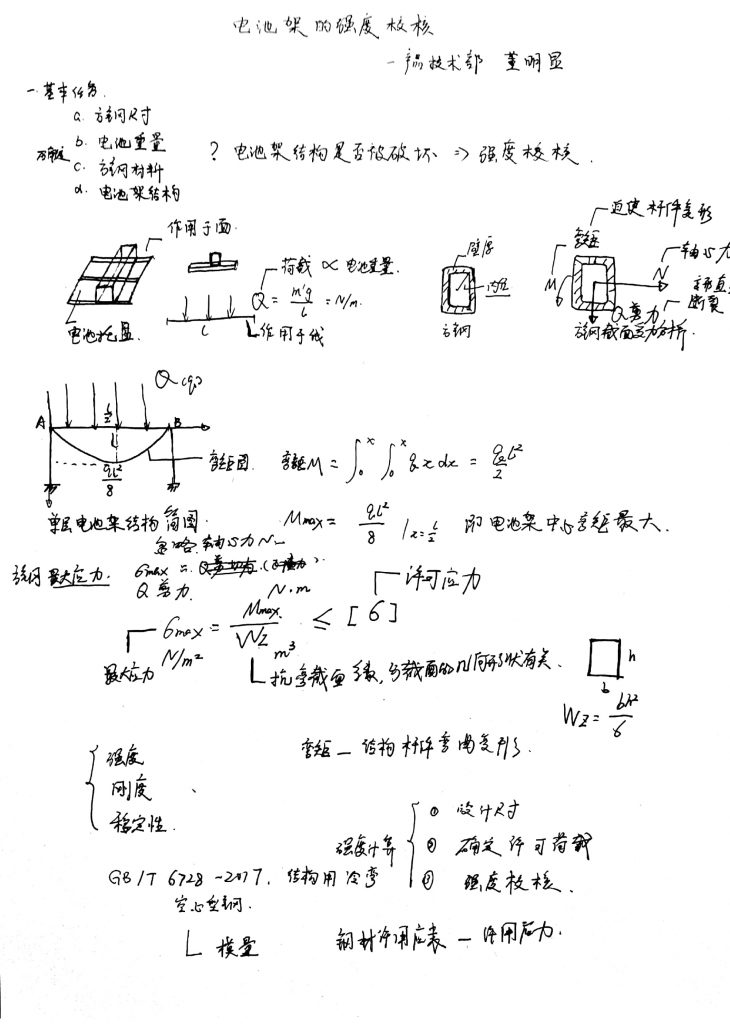 电池架的强度校核
- 产品技术部 董明显
一.基本任务.
a. 方钢尺寸
b. 电池重量
c. 方钢材料
d. 电池架结构
? 电池架结构是否被破坏 => 强度校核.
作用于面.
电池托量.
荷载 ∝ 电池重量.
Q = m'g/L = N/m.
L
作用于线
壁厚
内径
方钢
迫使杆件变形
弯矩
M
轴心力
N
Q剪力
断裂
方钢截面受力分析.
Q (q)
A
L/2
B
qL²/8
弯矩图.
弯矩M = ∫₀ˣ ∫₀ˣ q x dx = qL²/2
单层电池架结构简图.
Mmax = qL²/8 | x = L/2 即电池架中心弯矩最大.
忽略 轴心力N
Q剪力.
方钢最大应力.
许可应力
N·m
6max = Mmax/Wz ≤ [6]
N/m²
m³
最大应力
抗弯截面系数,与截面的几何形状有关.
h
b
Wz = bh²/6
弯矩 — 结构杆件弯曲变形.
强度
刚度
稳定性.
强度计算
① 设计尺寸
② 确定许可荷载
③ 强度校核.
GB/T 6728-2017. 结构用冷弯
空心型钢.
模量
钢材许用应表 — 许用应力.